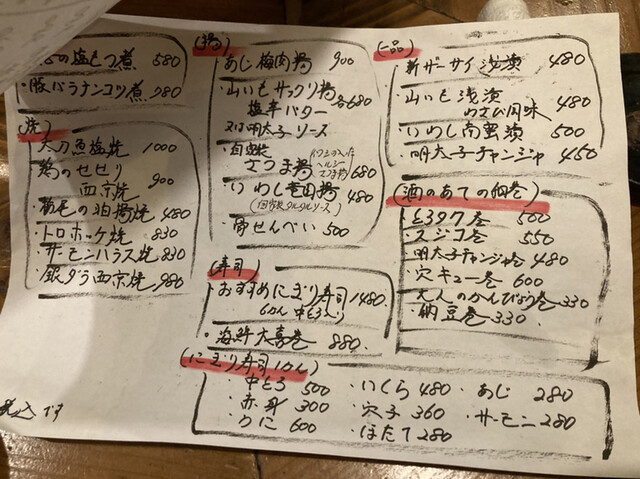 の塩もつ煮 580
・豚バラナンコツ煮 980
(焼)
太刀魚塩焼 1000
鶏のせせり
西京焼 900
480
・トロホッケ焼 830
・サーモンハラス焼 830
・銀ダラ西京焼 980
税込です
(揚)
あじ梅肉揚 900
・山いもサックリ揚
塩辛バター 各680
又は明太子ソース
・自家製
さつま揚 680
・いわし竜田揚 480
(自家製タルタルソース)
・骨せんべい 500
(寿司)
・おすすめにぎり寿司 1480
6かん 中とろ入り
・海鮮太巻 880
(一品)
・新ザーサイ浅漬 480
・山いも浅漬
わさび風味 480
・いわし南蛮漬 500
・明太子チャンジャ 450
(酒のあての細巻)
・とろタク巻 500
・スジコ巻 550
・明太子チャンジャ巻 480
・穴キュー巻 600
・大人のかんぴょう巻 330
・納豆巻 330
(にぎり寿司1かん)
・中とろ 500
・赤身 300
・うに 600
・いくら 480
・穴子 360
・ほたて 280
・あじ 280
・サーモン 280